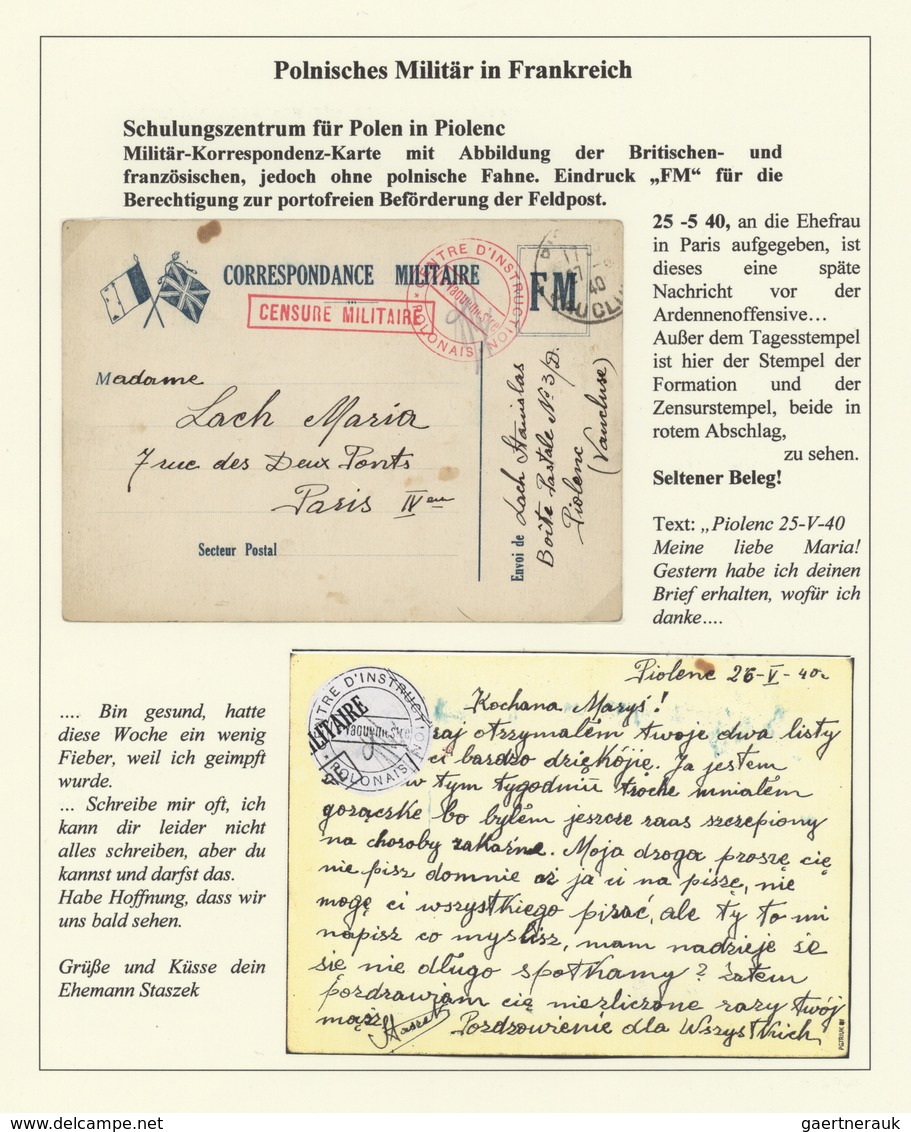 Polnisches Militär in Frankreich
Schulungszentrum für Polen in Piolenc
Militär-Korrespondenz-Karte mit Abbildung der Britischen- und
französischen, jedoch ohne polnische Fahne. Eindruck „FM“ für die
Berechtigung zur portofreien Beförderung der Feldpost.
25 -5 40, an die Ehefrau
in Paris aufgegeben, ist
dieses eine späte
Nachricht vor der
Ardennenoffensive…
Außer dem Tagesstempel
ist hier der Stempel der
Formation und der
Zensurstempel, beide in
rotem Abschlag,
zu sehen.
Seltener Beleg!
Text: „Piolenc 25-V-40
Meine liebe Maria!
Gestern habe ich deinen
Brief erhalten, wofür ich
danke….
CORRESPONDANCE MILITAIRE
CENSURE MILITAIRE
CENTRE D'INSTRUCTION
Vaguemestre
* POLONAIS *
FM
40
Madame
Lach Maria
7 rue des Deux Ponts
Paris IVem
Secteur Postal
Envoi de Lach Stanislas
Boîte Postale No 3/D.
Piolenc
(Vaucluse)
.... Bin gesund, hatte
diese Woche ein wenig
Fieber, weil ich geimpft
wurde.
... Schreibe mir oft, ich
kann dir leider nicht
alles schreiben, aber du
kannst und darfst das.
Habe Hoffnung, dass wir
uns bald sehen.
Grüße und Küsse dein
Ehemann Staszek
TRE D'INSTRUCTION
ILITAIRE
Vaguemestre
* POLONAIS
Piolenc 26-V-40.
Kochana Maryś!
raj otrzymałem twoje dwa listy
ci bardzo dziękóję. Ja jestem
w tym tygodniu troche mniałem
gorączke bo byłem jeszcze raas szczepiony
na choroby zakaśne. Moja droga proszę cię
nie pisz domnie aż ja ci na piszę, nie
mogę ci wszystkiego pisać, ale ty to mi
napisz co myslisz, mam nadzieje że
się nie długo spotkamy? Zatem
pozdrawjam cię niezliczone razy twój
mąż
Pozdrowienie dla Wszystkich
gaertnerauk